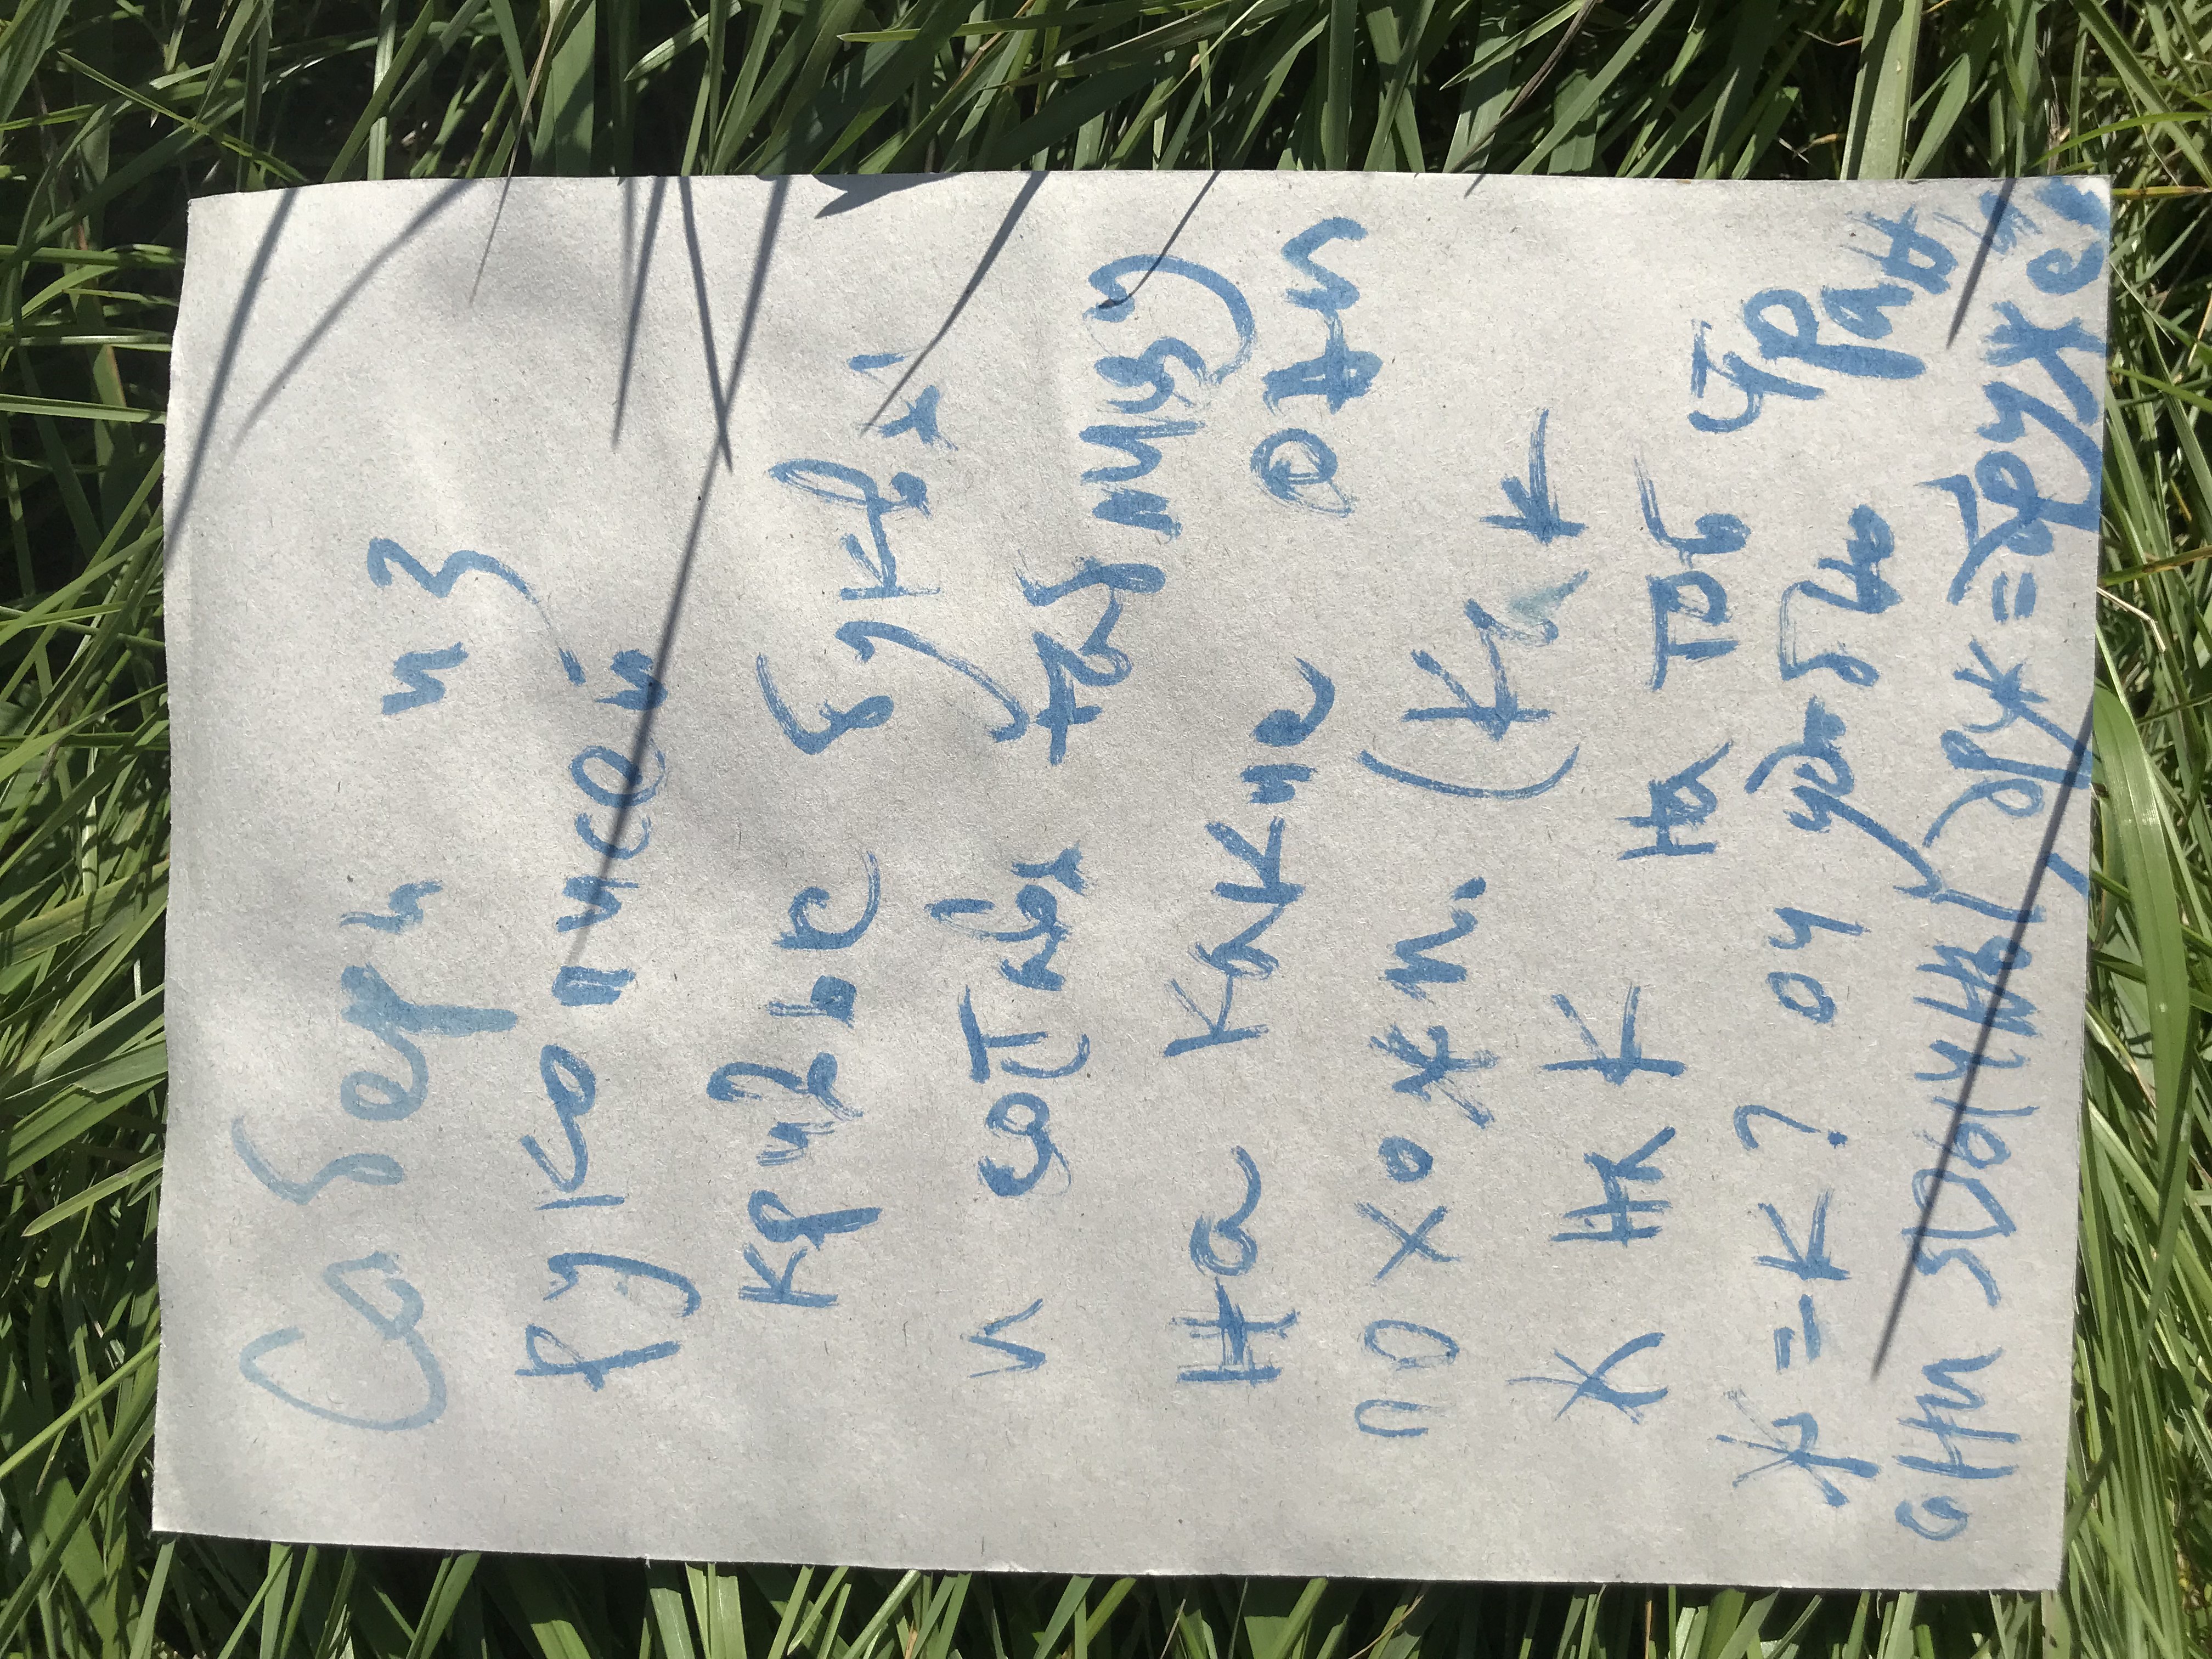 Собери из
рукописей
кривые буквы
и составь таблицу
на какие они
похожи. (Как
Ж на К
на тоб
Ж = К ? оч удобно
они
друж = друже